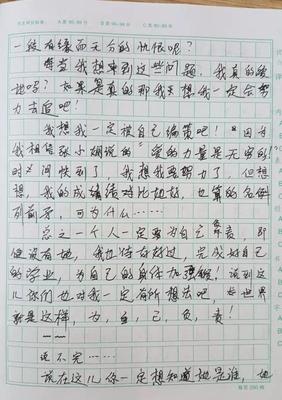 一段有缘而无分的仇恨呢?
每当我想到这些问题，我真的爱
她吗?如果是真的那我想我一定会努
力去追吧!
我想我一定被自己编策吧!因为
我相信张小娴说的"爱的力量是无穷的!
时间快到了，我想我要努力了，但想
想，我的成绩对比她好，也算的名例
列前茅，可为什么……
总之一个人一定要为自己负责，即
使没有她，我也得奋好过，完成好自己
的学业，为自己的身体加强锻!说到这
儿你们也对我一定有所想法吧，世界
就是这样，为，自，己，负，责!
——
说不完……
说在这儿你一定想知道她是谁，她